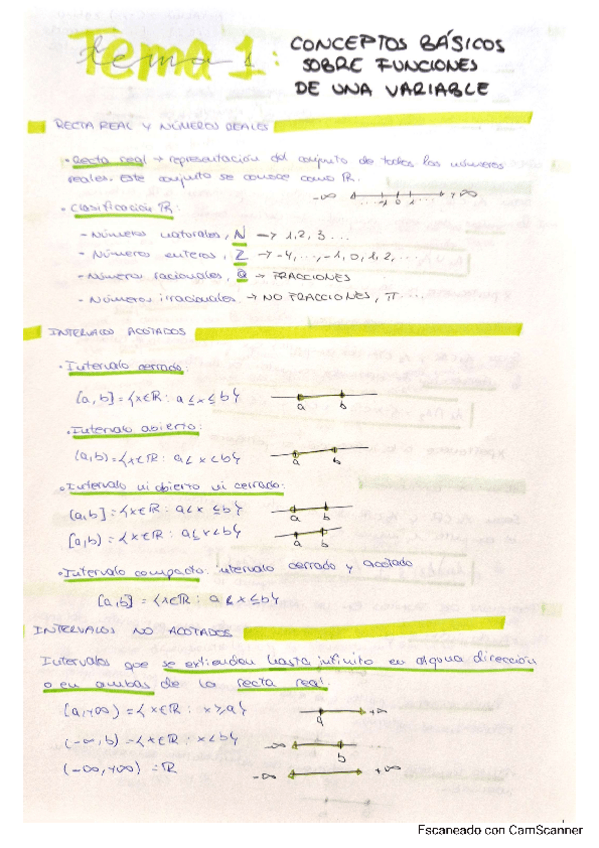 Tema 1: CONCEPTOS BÁSICOS
SOBRE FUNCIONES
DE UNA VARIABLE
RECTA REAL Y NÚMEROS REALES
• Recta real → representación del conjunto de todos los números
reales. Este conjunto se conoce como ℝ.
-∞ -1 0 1 +∞
• Clasificación ℝ:
- Números naturales, N → 1, 2, 3 ...
- Números enteros, Z → -4, ..., -1, 0, 1, 2, ...
- Números racionales, Q → FRACCIONES
- Números irracionales → NO FRACCIONES, π ...
INTERVALOS ACOTADOS
• Intervalo cerrado:
[a, b] = {x∈ℝ: a ≤ x ≤ b} a b
• Intervalo abierto:
(a, b) = {x∈ℝ: a < x < b} a b
• Intervalo ni abierto ni cerrado:
(a, b] = {x∈ℝ: a < x ≤ b} a b
[a, b) = {x∈ℝ: a ≤ x < b} a b
• Intervalo compacto: intervalo cerrado y acotado
[a, b] = {x∈ℝ: a ≤ x ≤ b}
INTERVALOS NO ACOTADOS
Intervalos que se extienden hasta infinito en alguna dirección
o en ambas de la recta real.
[a, +∞) = {x∈ℝ: x ≥ a} a +∞
(-∞, b) = {x∈ℝ: x < b} -∞ b
(-∞, +∞) = ℝ -∞ +∞
Escaneado con CamScanner